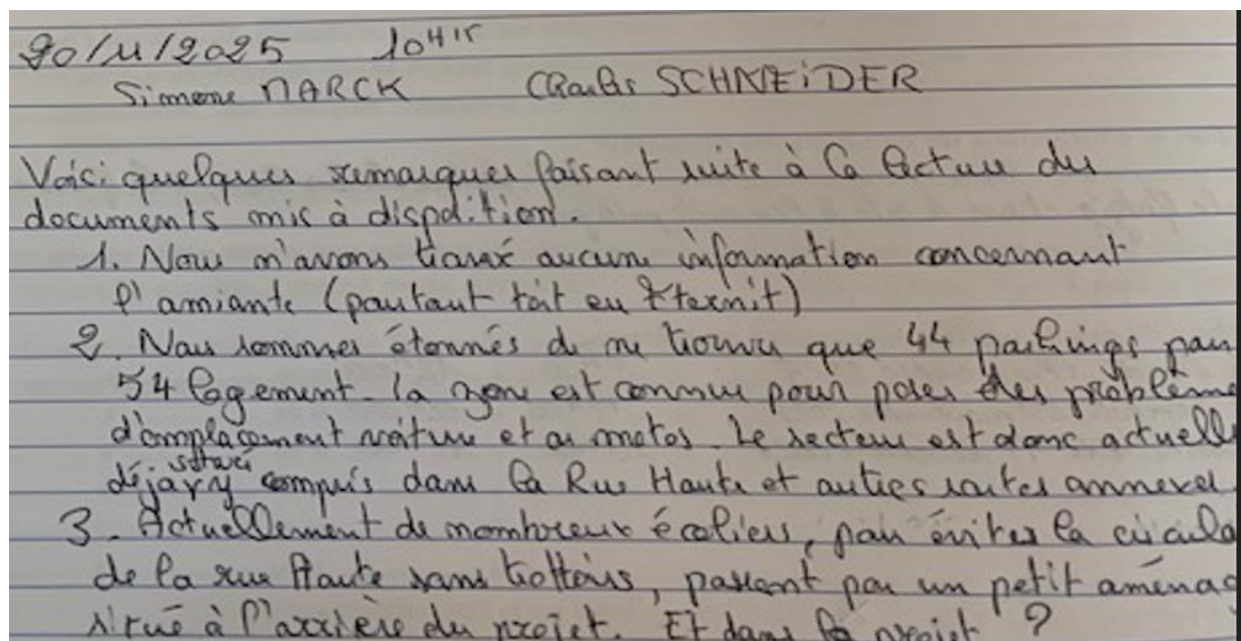 20/11/2025 10H15
Simone MARCK Charles SCHNEiDER
Voici quelques remarques faisant suite à la lecture des
documents mis à disposition.
1. Nous n'avons trouvé aucune information concernant
l'amiante (pourtant toit en Eternit)
2. Nous sommes étonnés de ne trouver que 44 parkings pour
54 logement. la zone est connue pour poser des problème
d'emplacement voiture et motos. Le secteur est donc actuelle
déjà saturé y compris dans la Rue Haute et autres routes annexes
3. Actuellement de nombreux écoliers, pour éviter la circula
de la rue Haute sans trottoirs, passent par un petit aménag
situé à l'arrière du projet. Et dans le projet ?